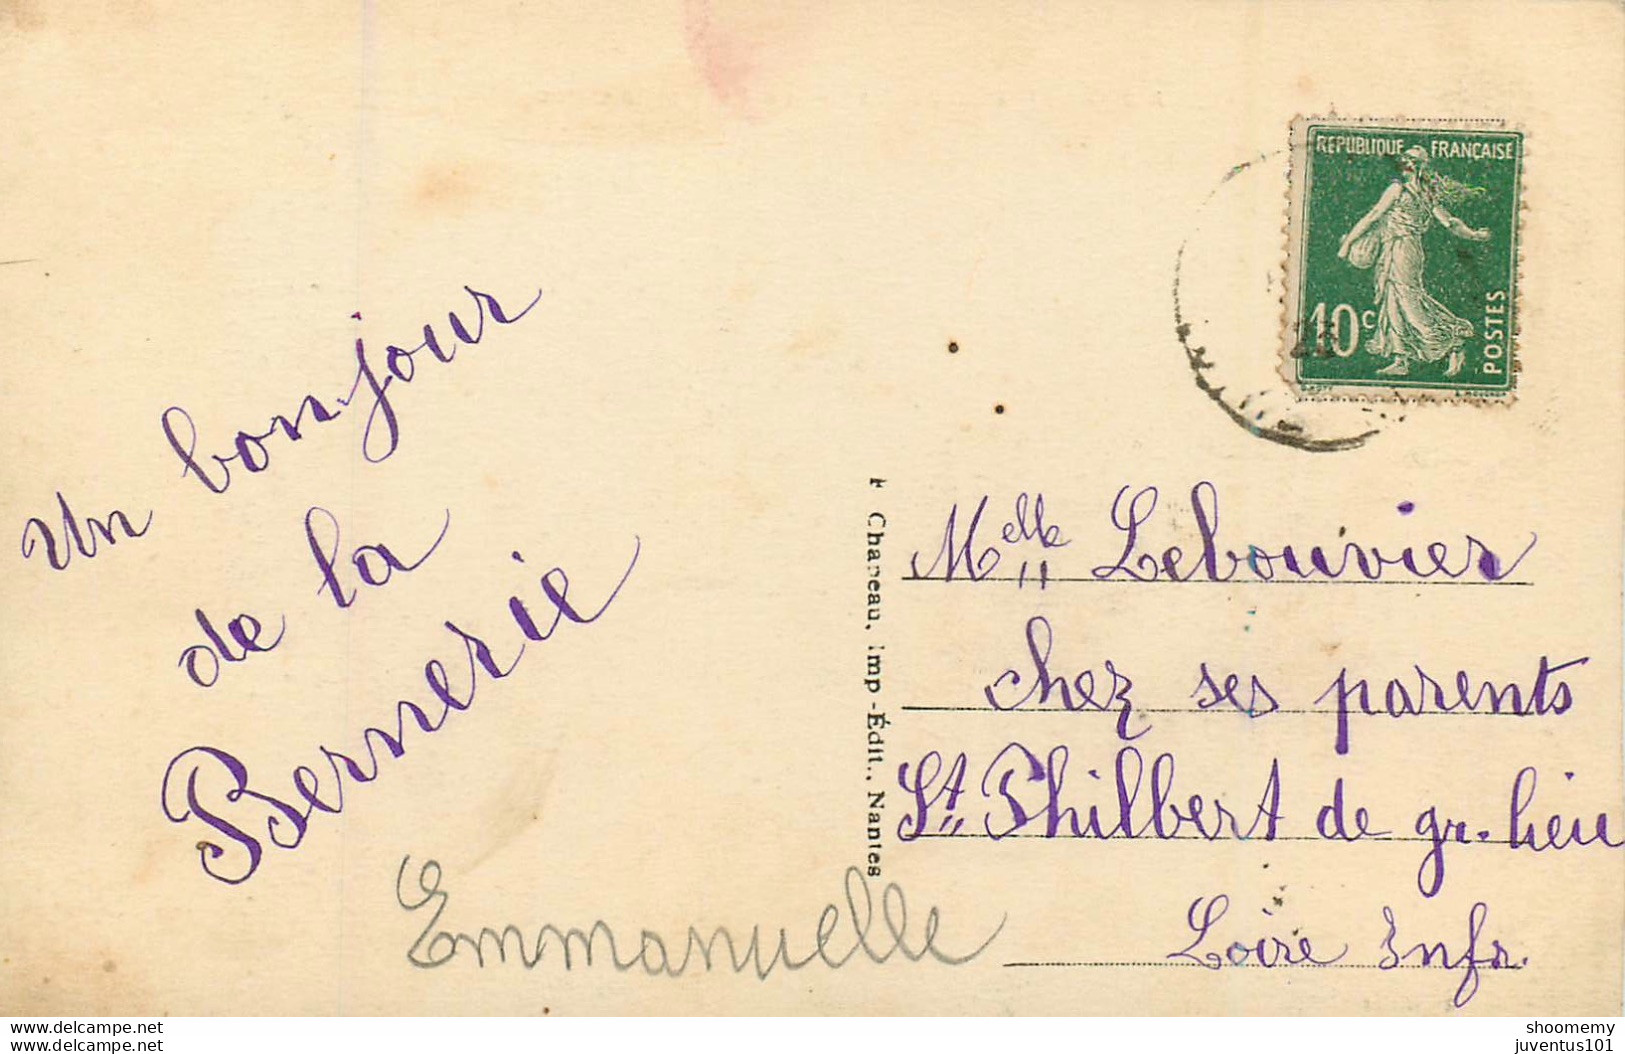 RÉPUBLIQUE FRANÇAISE
10c
POSTES
Un bonjour
de la
Bernerie
Emmanuelle
Chapeau, Imp-Édit., Nantes
Melle Lebouvier
chez ses parents
St. Philbert de gr. lieu
Loire Infr.
www.delcampe.net
www.delcampe.net
shoomemy
juventus101